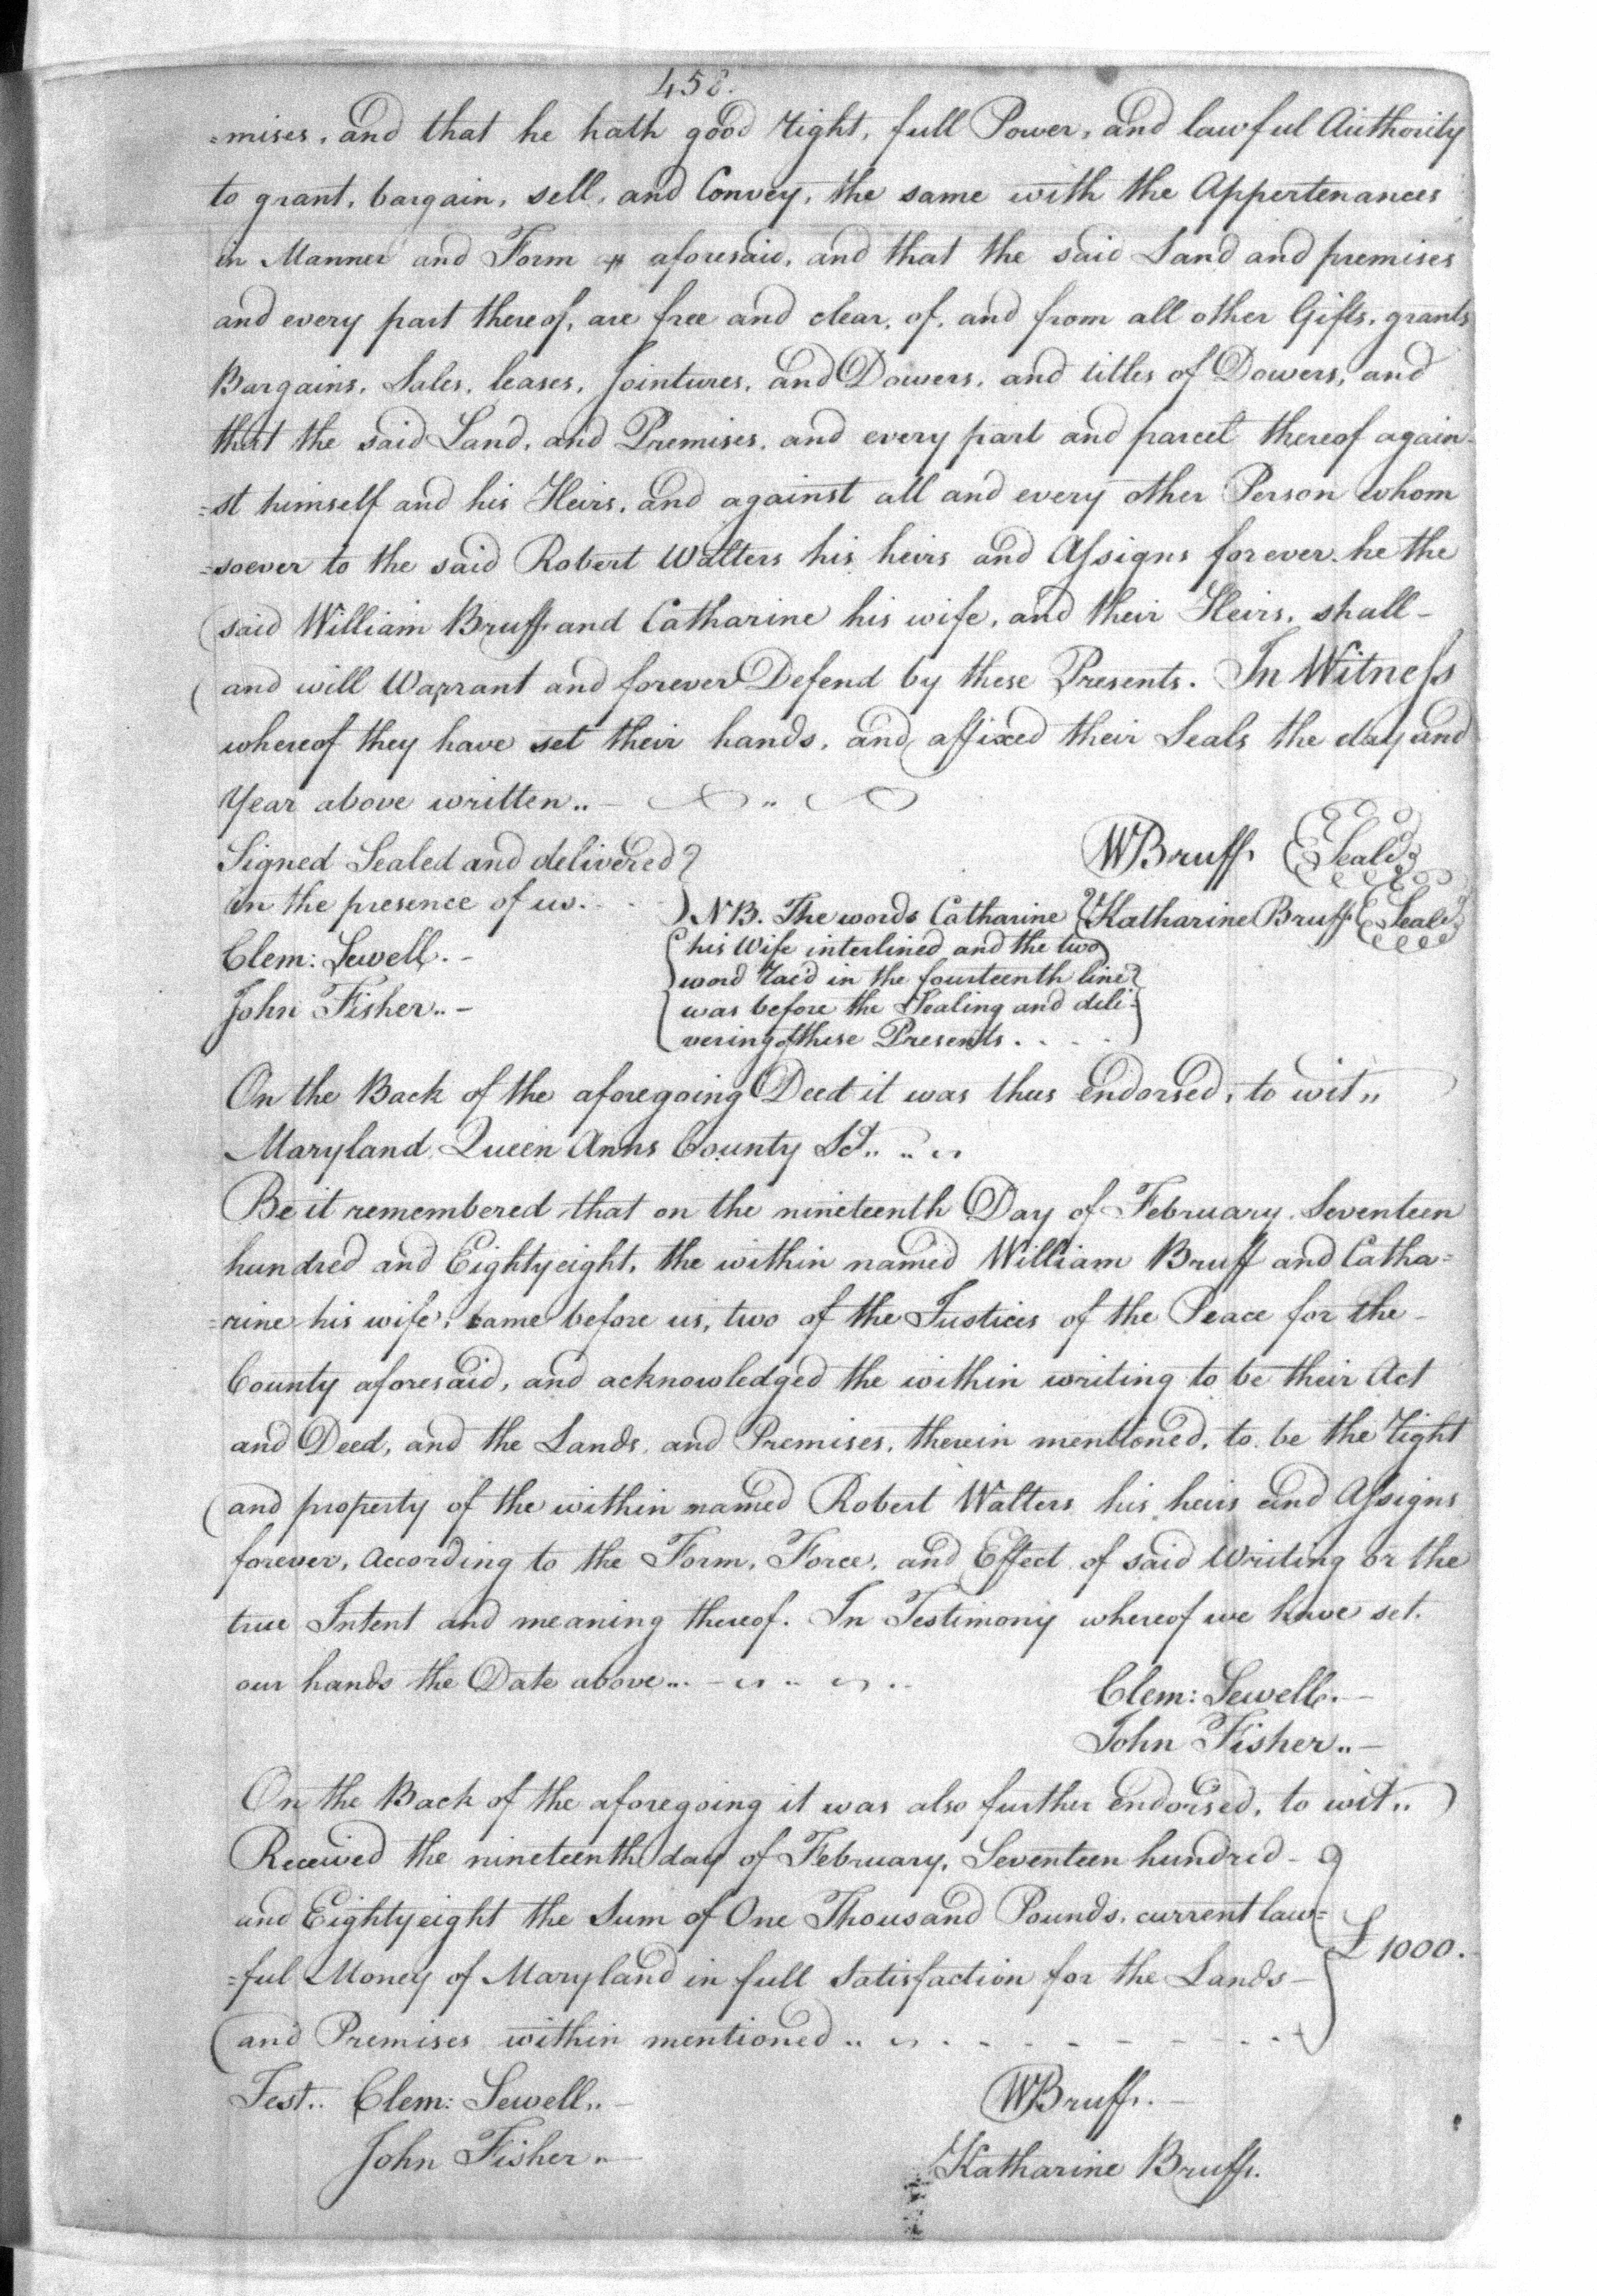 458.
=mises, and that he hath good right, full Power, and lawful Authority
to grant, bargain, sell, and Convey, the same with the Appertenances
in Manner and Form as aforesaid, and that the said Land and premises
and every part thereof, are free and clear, of, and from all other Gifts, grants
Bargains, Sales, leases, Jointures, and Dowers, and titles of Dowers, and
that the said Land, and Premises, and every part and parcel thereof again-
=st himself and his Heirs, and against all and every other Person whom
=soever to the said Robert Walters his heirs and Assigns forever he the
said William Bruff and Catharine his wife, and their Heirs, shall -
and will Warrant and forever Defend by these Presents. In Witness
whereof they have set their hands, and affixed their Seals the day and
Year above written..
Signed Sealed and delivered
in the presence of us.
Clem: Sewell. -
John Fisher.. -
NB. The words Catharine
his Wife interlined and the two
word rac'd in the fourteenth line
was before the Sealing and deli-
vering of these Presents . . . .
WBruff. Seal
Katharine Bruff Seal
On the Back of the aforegoing Deed it was thus endorsed, to wit,,
Maryland Queen Anns County Sct..
Be it remembered that on the nineteenth Day of February Seventeen
hundred and Eightyeight, the within named William Bruff and Catha=
=rine his wife, came before us, two of the Justices of the Peace for the -
County aforesaid, and acknowledged the within writing to be their Act
and Deed, and the Lands and Premises, therein mentioned, to be the right
and property of the within named Robert Walters his heirs and Assigns
forever, According to the Form, Force, and Effect of said Writing or the
true Intent and meaning thereof. In Testimony whereof we have set.
our hands the Date above..
Clem: Sewell. -
John Fisher.. -
On the Back of the aforegoing it was also further endorsed, to wit..
Received the nineteenth day of February, Seventeen hundred -
and Eightyeight the Sum of One Thousand Pounds, current law=
=ful Money of Maryland in full Satisfaction for the Lands -
and Premises within mentioned ..
£ 1000.
Test.. Clem: Sewell.. -
John Fisher.. -
WBruff. -
Katharine Bruff.